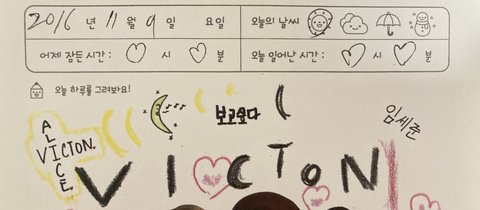 2016 년 11 월 9 일 요일 오늘의 날씨
어제 잠든 시간 : 시 분 오늘 일어난 시간 : 시 분
오늘 하루를 그려봐요!
ALICE.
VICTON.
보고싶다
임세준
VICTON